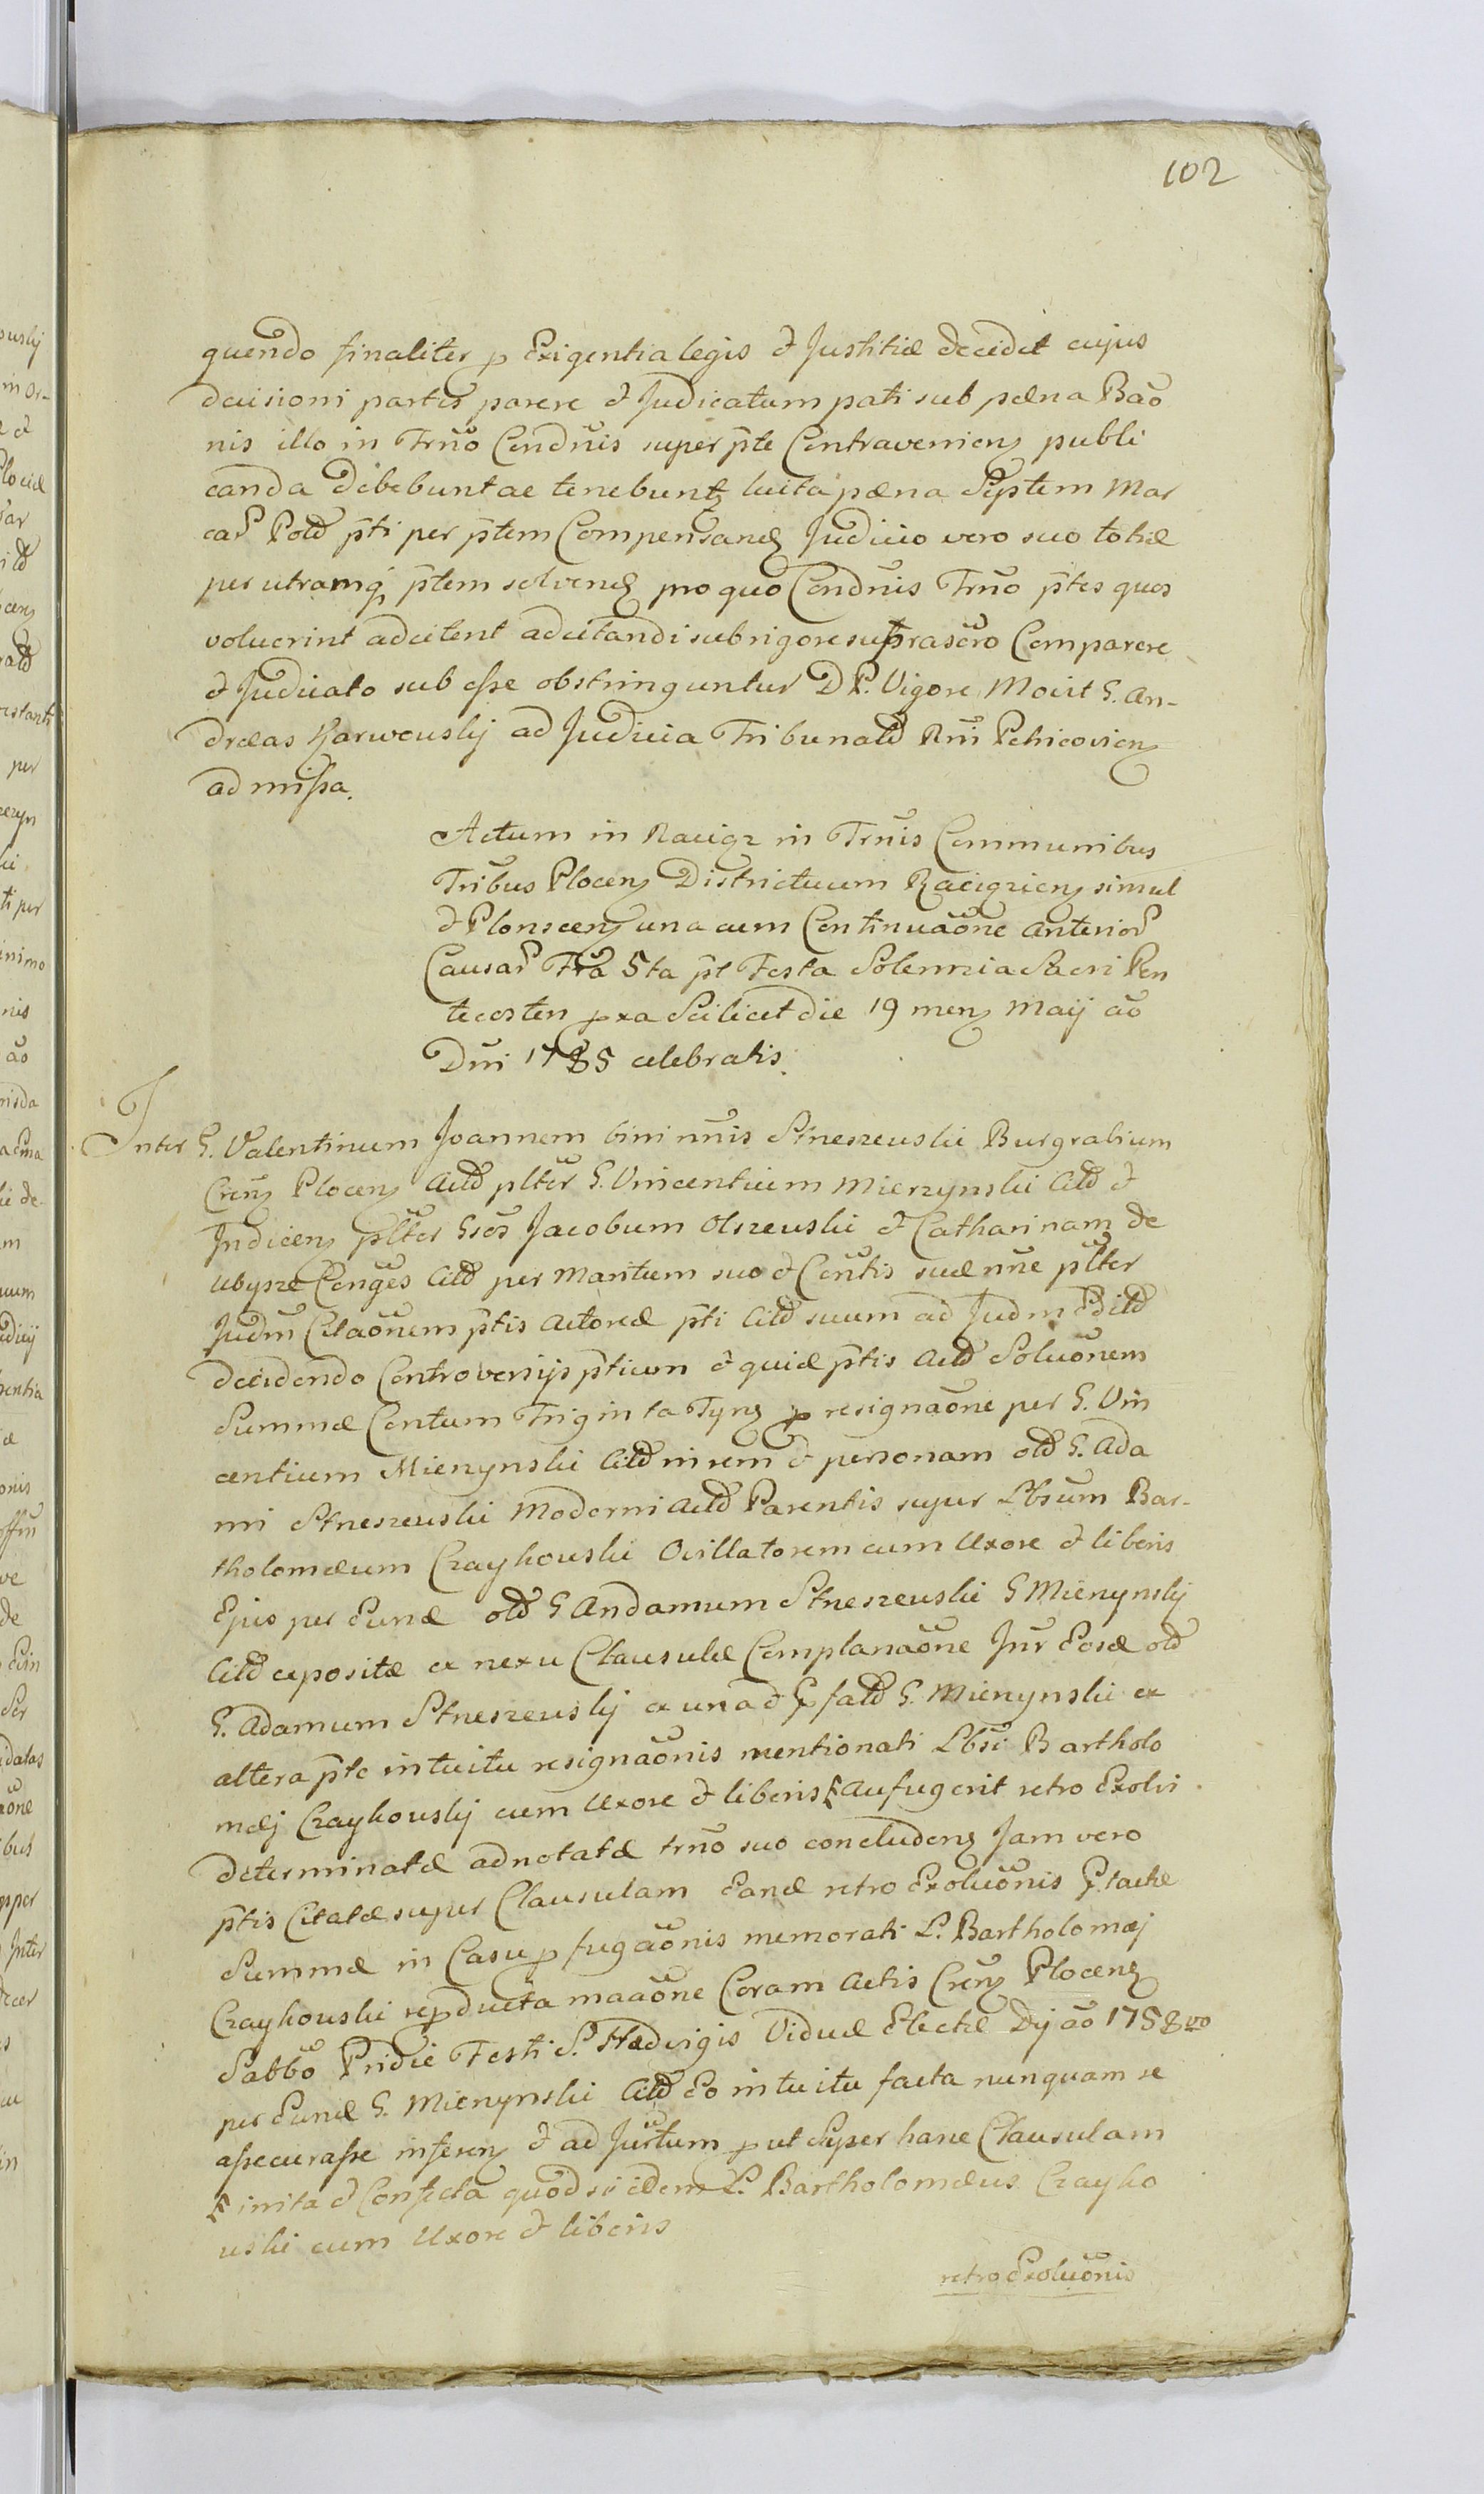 102
quendo finaliter p Exigentia legis & Justitiæ decidet cujus
decisioni partes parere & Judicatum pati sub pœna Baõ
nis illo in Trño Condñis super p̃te Contravenienz publi
canda debebunt ac tenebuntz luita pœna Septem Mar
car Pold p̃ti per p̃tem Compensanđ Judicio vero suo totiæ
per utramq p̃tem solvenđ pro quo Condñis Trño p̃tes quos
voluerint adcitent adcitandi sub rigore suprascr̃o Comparere
& Judicato sub esse obstringuntur D P. Vigore Moiit G. An-
dræas Karwouskj ad Judicia Tribunald Rni Petricovienz
admissa.
Actum in Raciąz in Trñis Communibus
Tribus Plocenz Districtuum Raciązienz simul
& Plonscenz una cum Continuãone anterior
Causar Fr̃a 5ta p̃t Festa Solennia Sacri Pen
tecosten pxa Scilicet die 19 menz Maij ão
Dñi 1785 celebratis.
Inter G. Valentinum Joannem bini nñis Strzeszewski Burgrabium
Cren̄z Plocenz Actđ pltẽr G. Vincentium Mierzynski Citđ &
Judicenz pltẽr Gsõs Jacobum Olszewski & Catharinam de
Ubysze Conges̃ Citđ per Maritum suo & Contis̃ suæ nñe pltẽr
Judm̃ Citãonem p̃tis Actoreæ p̃ti Citđ suum ad Judm Edit̃đ
decidendo Controversijs p̃tium & quiæ p̃tis Actđ Soluõnem
Summæ Centum Triginta Tynz p resignãone per G. Vin
centium Mierzynski Citđ in rem & personam olđ G. Ada
mi Strzeszewski Moderni Actđ Parentis super Lbsũm Bar-
tholomæum Czaykowski Ovillatorem cum Uxore & liberis
Ejus per Eunđ olđ G Andamum Strzeszewski G Mierzynskj
Citđ expositæ ex nexu Clausulæ Complanãone Intr Eosđ olđ
G. Adamum Strzeszewskj ex una & pfatđ G. Mierzynski ex
altera p̃te intuitu resignãonis mentionati Lbsi Bartholo
mæj Czaykowskj cum Uxore & liberis aufugerit retro Exolvi
determinatæ adnotatæ trño suo concludenz Jam vero
p̃tis Citatæ super Clausulam Eanđ retro Exoluõnis ptactæ
Summæ in Casu pfugãonis memorati L. Bartholomæj
Czaykowski repducta maãone Coram Actis Cren̄z Plocenz
Sabbõ Pridie Festi S. Hedvigis Viduæ Electæ Dij ão 1758vo
per Eunđ G. Mierzynski Citđ Eo intuitu facta nunquam se
assecurasse inferenz & ad Jur̃tum put Super hanc Clausulam
inita & Confecta quod si idem L. Bartholomæus Czayko
wski cum Uxore & liberis
retro Exoluõnis